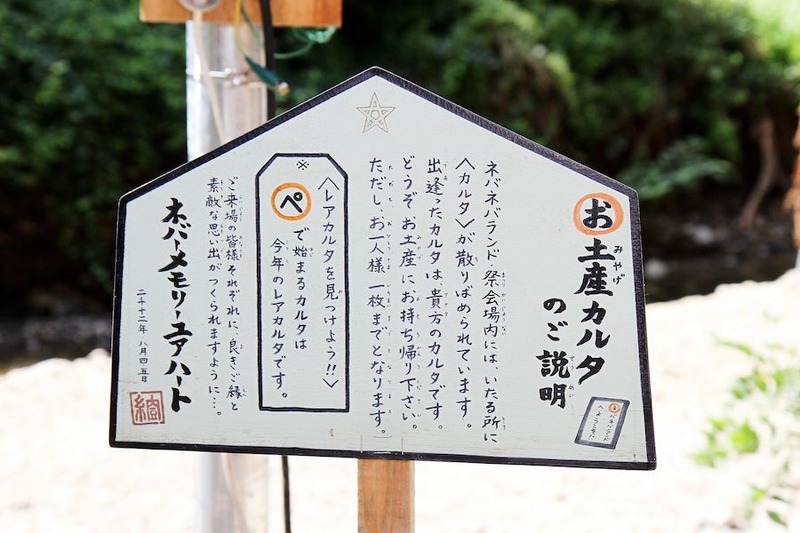 お土産カルタ
のご説明
ネバネバランド祭会場内には、いたる所に
〈カルタ〉が散りばめられています。
出逢ったカルタは貴方のカルタです。
どうぞ、お土産にお持ち帰り下さい。
ただし、お一人様一枚までとなります。
〈レアカルタを見つけよう!!〉
※
ペ
で始まるカルタは
今年のレアカルタです。
ご来場の皆様それぞれに、良きご縁と
素敵な思い出がつくられますように…。
ネバーメモリーユアハート
二千十二年 八月四五日